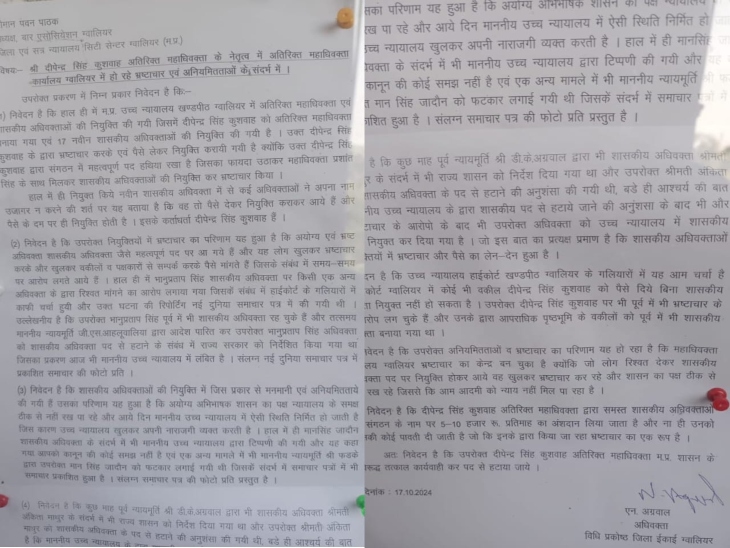 श्रीमान पवन पाठक
अध्यक्ष, बार एसोसियेशन ग्वालियर
जिला एवं सत्र न्यायालय सिटी सेन्टर ग्वालियर (म.प्र.)
विषयः- श्री दीपेन्द्र सिंह कुशवाह अतिरिक्त महाधिवक्ता के नेतृत्व में अतिरिक्त महाधिवक्ता
कार्यालय ग्वालियर में हो रहे भ्रष्टाचार एवं अनियमितताओं के संदर्भ में ।
उपरोक्त प्रकरण में निम्न प्रकार निवेदन है किः-
निवेदन है कि हाल ही में म.प्र. उच्च न्यायालय खण्डपीठ ग्वालियर में अतिरिक्त महाधिवक्ता एवं
शासकीय अधिवक्ताओं की नियुक्ति की गयी जिसमें दीपेन्द्र सिंह कुशवाह को अतिरिक्त महाधिवक्ता
बनाया गया एवं 17 नवीन शासकीय अधिवक्ताओं की नियुक्ति की गयी है । उक्त दीपेन्द्र सिंह
कुशवाह के द्वारा भ्रष्टाचार करके एवं पैसे लेकर नियुक्ति करायी गयी है क्योंकि उक्त दीपेन्द्र सिंह
कुशवाह द्वारा संगठन में महत्वपूर्ण पद हथिया रखा है जिसका फायदा उठाकर महाधिवक्ता प्रशांत
सिंह के साथ मिलकर शासकीय अधिवक्ताओं की नियुक्ति कर भ्रष्टाचार किया ।
हाल ही में नियुक्त किये नवीन शासकीय अधिवक्ता में से कई अधिवक्ताओं ने अपना नाम
उजागर न करने की शर्त पर यह बताया है कि वह तो पैसे देकर नियुक्ति कराकर आये हैं और
पैसे के दम पर ही नियुक्ति होती है । इसके कर्ताधर्ता दीपेन्द्र सिंह कुशवाह हैं ।
(2) निवेदन है कि उपरोक्त नियुक्तियों में भ्रष्टाचार का परिणाम यह हुआ है कि अयोग्य एवं भ्रष्ट
अधिवक्ता शासकीय अधिवक्ता जैसे महत्वपूर्ण पद पर आ गये हैं और यह लोग खुलकर भ्रष्टाचार
करके और खुलकर वकीलों व पक्षकारों से सम्पर्क करके पैसे मांगते हैं जिसके संबंध में समय-समय
पर आरोप लगते आये हैं । हाल ही में मानुप्रताप सिंह शासकीय अधिवक्ता पर किसी एक अन्य
अधिवक्ता के द्वारा रिश्वत मांगने का आरोप लगाया गया जिसके संबंध में हाईकोर्ट के गलियारों में
काफी चर्चा हुयी और उक्त घटना की रिपोर्टिंग नई दुनिया समाचार पत्र में की गयी थी ।
उल्लेखनीय है कि उपरोक्त मानुप्रताप सिंह पूर्व में भी शासकीय अधिवक्ता रह चुके हैं और तत्समय
माननीय न्यायमूर्ति जी.एस.आहलूवालिया द्वारा आदेश पारित कर उपरोक्त मानुप्रताप सिंह अधिवक्ता
को शासकीय अधिवक्ता पद से हटाने के संबंध में राज्य सरकार को निर्देशित किया गया था
जिसका प्रकरण आज भी माननीय उच्च न्यायालय में लंबित है । संलग्न नई दुनिया समाचार पत्र में
प्रकाशित समाचार की फोटो प्रति ।
(3) निवेदन है कि शासकीय अधिवक्ताओं की नियुक्ति में जिस प्रकार से मनमानी एवं अनियमिततायें
की गयी हैं उसका परिणाम यह हुआ है कि अयोग्य अभिभाषक शासन का पक्ष न्यायालय के समक्ष
ठीक से नहीं रख पा रहे और आये दिन माननीय उच्च न्यायालय में ऐसी स्थिति निर्मित हो जाती है
जिस कारण उच्च न्यायालय खुलकर अपनी नाराजगी व्यक्त करती है । हाल ही में मानसिंह जादौन
शासकीय अधिवक्ता के संदर्भ में भी माननीय उच्च न्यायालय द्वारा टिप्पणी की गयी और यह कहा
गया आपको कानून की कोई समझ नहीं है एवं एक अन्य मामले में भी माननीय न्यायमूर्ति श्री फडके
द्वारा उपरोक्त मान सिंह जादौन को फटकार लगाई गयी थी जिसके संदर्भ में समाचार पत्रों में भी
समाचार प्रकाशित हुआ है । संलग्न समाचार पत्र की फोटो प्रति प्रस्तुत है ।
(4) निवेदन है कि कुछ माह पूर्व न्यायमूर्ति श्री डी.के.अग्रवाल द्वारा भी शासकीय अधिवक्ता श्रीमती
अंकिता माथुर के संदर्भ में भी राज्य शासन को निर्देश दिया गया था और उपरोक्त श्रीमती अंकिता
माथुर को शासकीय अधिवक्ता के पद से हटाने की अनुशंसा की गयी थी, बड़े ही आश्चर्य की बात
है कि माननीय उच्च न्यायालय के द्वारा
सका परिणाम यह हुआ है कि अयोग्य अभिभाषक शासन का पक्ष न्यायालय
रख पा रहे और आये दिन माननीय उच्च न्यायालय में ऐसी स्थिति निर्मित हो
उच्च न्यायालय खुलकर अपनी नाराजगी व्यक्त करती है । हाल ही में मानसिंह
धिवक्ता के संदर्भ में भी माननीय उच्च न्यायालय द्वारा टिप्पणी की गयी और यह
कानून की कोई समझ नहीं है एवं एक अन्य मामले में भी माननीय न्यायमूर्ति श्री
मान सिंह जादौन को फटकार लगाई गयी थी जिसके संदर्भ में समाचार पत्रों में
काशित हुआ है । संलग्न समाचार पत्र की फोटो प्रति प्रस्तुत है ।
है कि कुछ माह पूर्व न्यायमूर्ति श्री डी.के.अग्रवाल द्वारा भी शासकीय अधिवक्ता श्रीमती
र के संदर्भ में भी राज्य शासन को निर्देश दिया गया था और उपरोक्त श्रीमती अंकिता
शासकीय अधिवक्ता के पद से हटाने की अनुशंसा की गयी थी, बड़े ही आश्चर्य की बात
नीय उच्च न्यायालय के द्वारा शासकीय पद से हटाये जाने की अनुशंसा के बाद भी और
टाचार के आरोपो के बाद भी उपरोक्त अधिवक्ता को उच्च न्यायालय में शासकीय
नियुक्त कर दिया गया है । जो इस बात का प्रत्यक्ष प्रमाण है कि शासकीय अधिवक्ताओं
क्तियों में भ्रष्टाचार और पैसा का लेन-देन हुआ है ।
दन है कि उच्च न्यायालय हाईकोर्ट खण्डपीठ ग्वालियर के गलियारों में यह आम चर्चा है
कोर्ट ग्वालियर में कोई भी वकील दीपेन्द्र सिंह कुशवाह को पैसे दिये बिना शासकीय
ता नियुक्त नहीं हो सकता है । उपरोक्त दीपेन्द्र सिंह कुशवाह पर भी पूर्व में भी भ्रष्टाचार के
रोप लग चुके हैं और उनके द्वारा आपराधिक पृष्ठभूमि के वकीलों को पूर्व में भी शासकीय
क्ता बनाया गया था ।
वेदन है कि उपरोक्त अनियमितताओं व भ्रष्टाचार का परिणाम यह हो रहा है कि महाधिवक्ता
लय ग्वालियर भ्रष्टाचार का केन्द्र बन चुका है क्योंकि जो लोग रिश्वत देकर शासकीय
वक्ता पद पर नियुक्ति होकर आये वह खुलकर भ्रष्टाचार कर रहे और शासन का पक्ष ठीक से
रख रहे जिससे कि आम आदमी को न्याय नहीं मिल पा रहा है ।
निवेदन है कि दीपेन्द्र सिंह कुशवाह अतिरिक्त महाधिवक्ता द्वारा समस्त शासकीय अधिवक्ताओं
संगठन के नाम पर 5-10 हजार रू. प्रतिमाह का अंशदान लिया जाता है और ना ही उनको
की कोई पावती दी जाती है जो कि इनके द्वारा किया जा रहा भ्रष्टाचार का एक रूप है ।
अतः निवेदन है कि दीपेन्द्र सिंह कुशवाह अतिरिक्त महाधिवक्ता म.प्र. शासन के
रूद्ध तत्काल कार्यवाही कर पद से हटाया जाये ।
दिनांक : 17.10.2024
एन. अग्रवाल
अधिवक्ता
विधि प्रकोष्ठ जिला ईकाई ग्वालियर